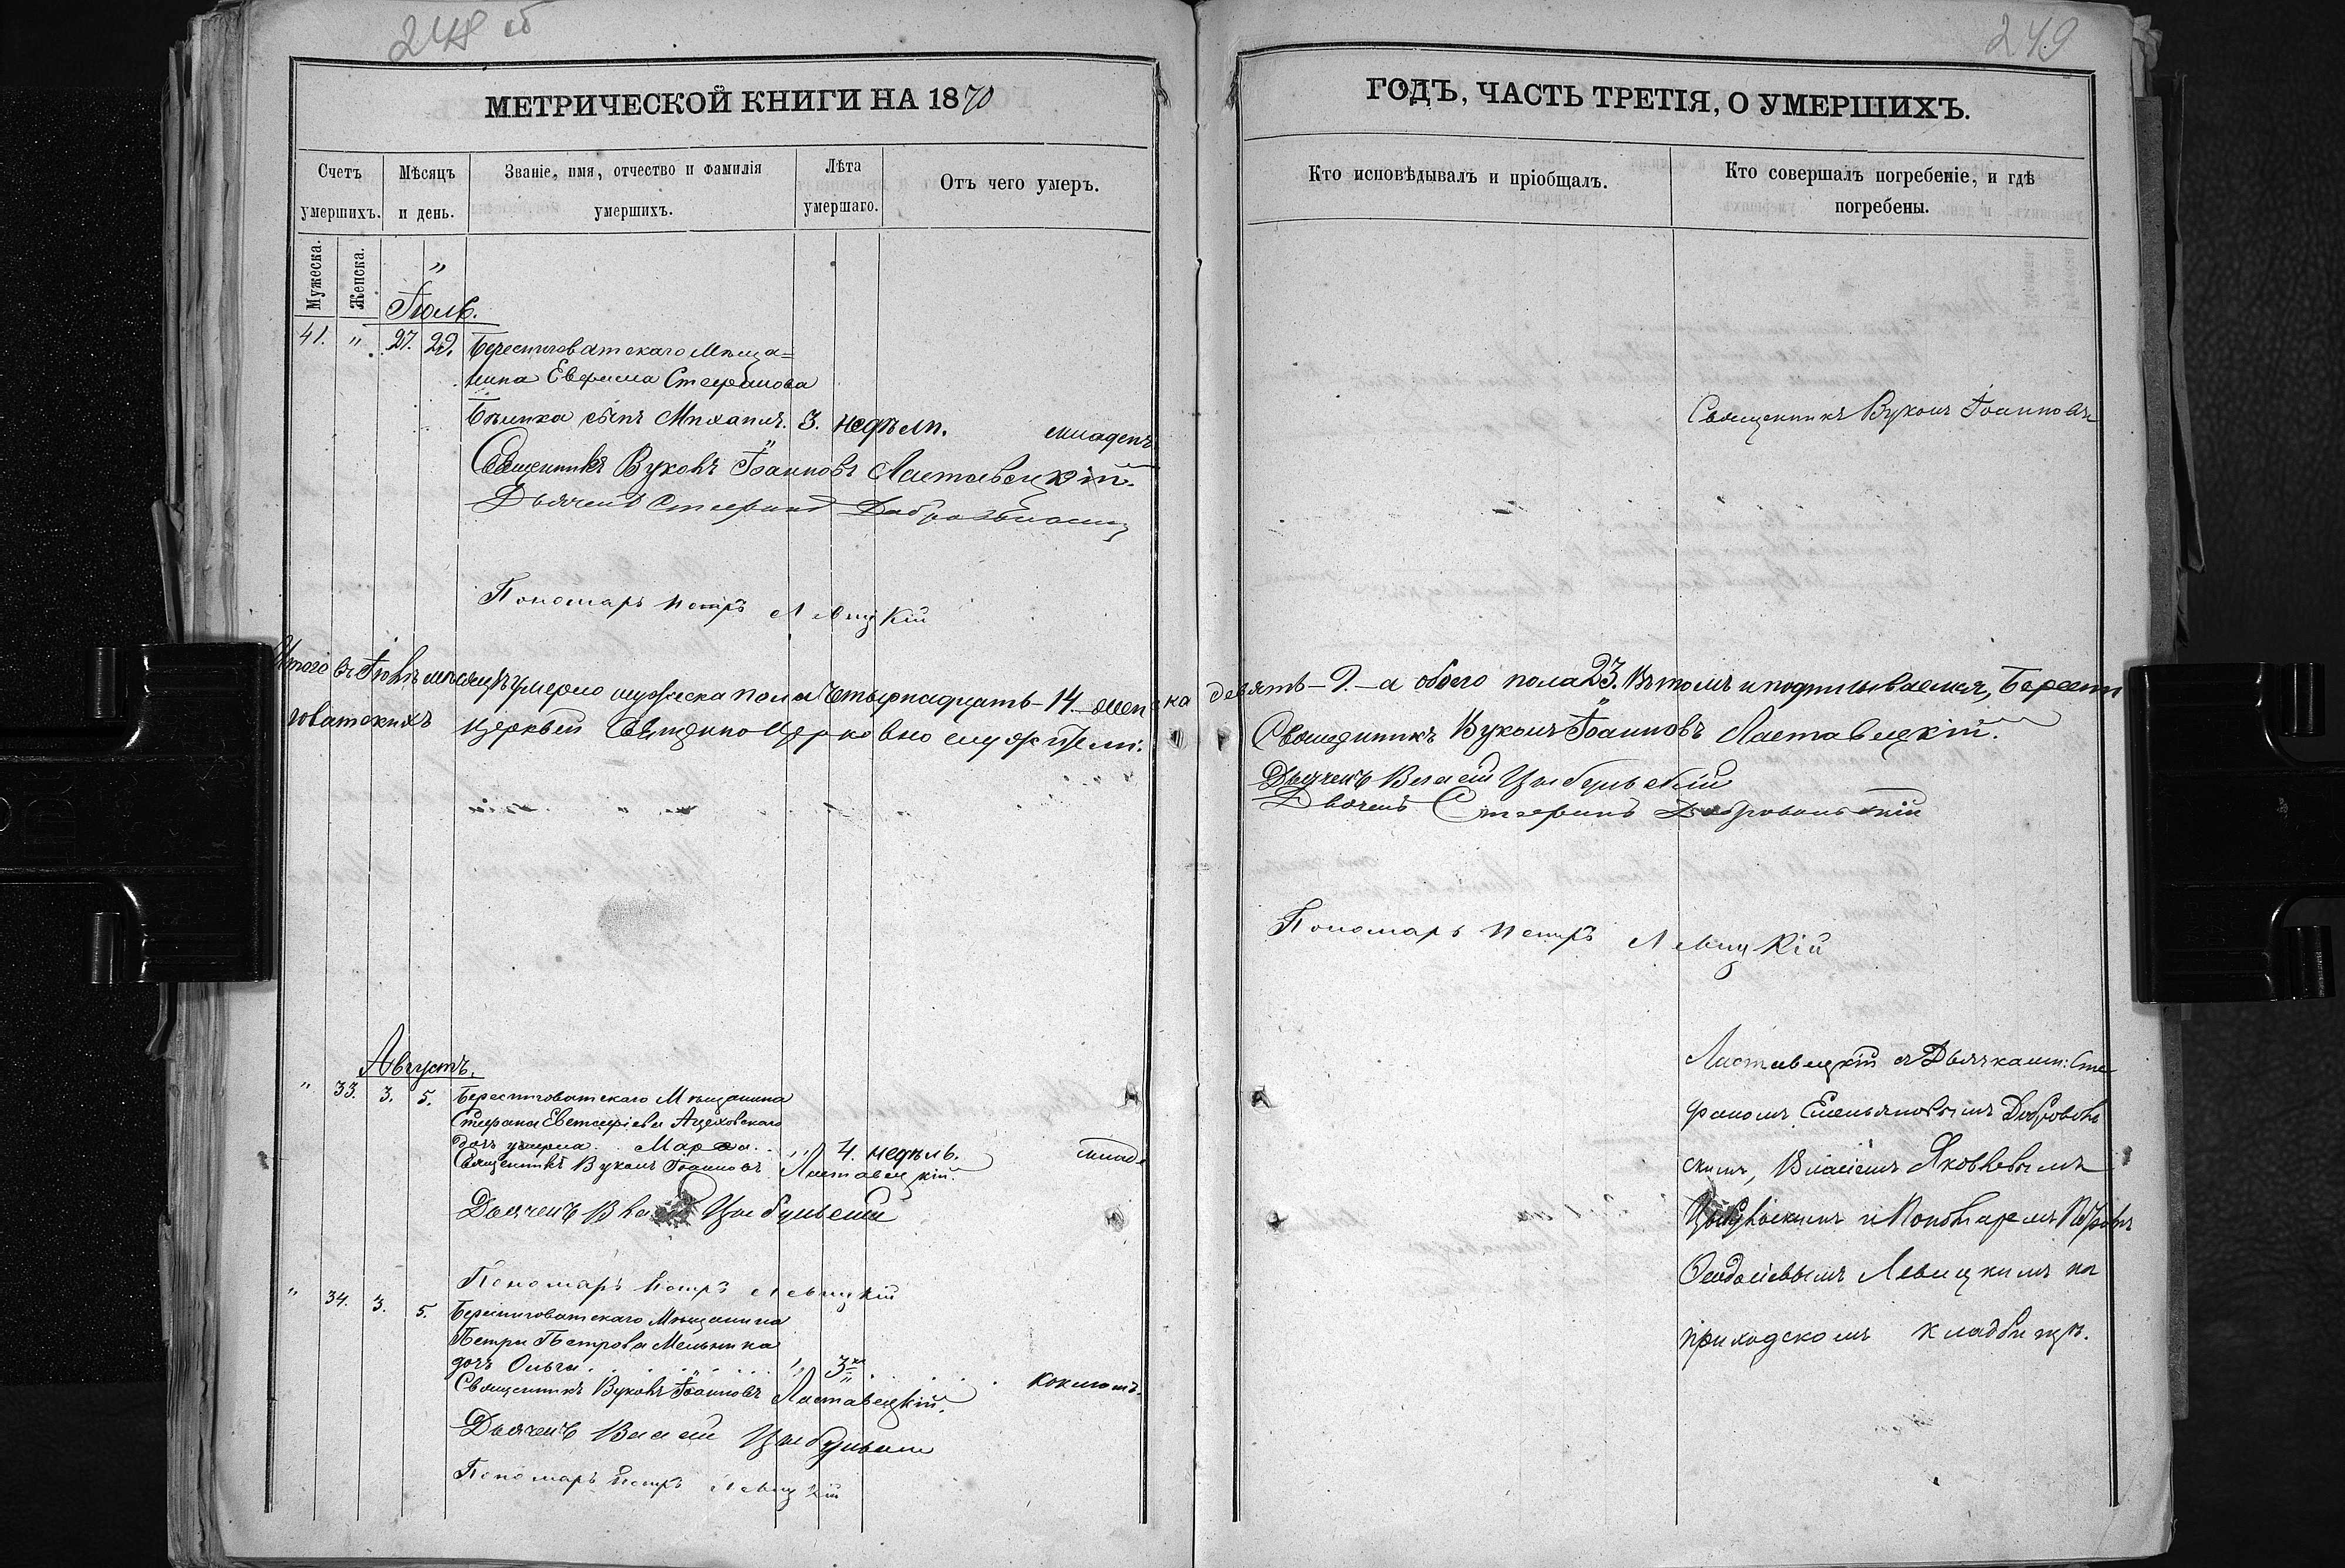 248 об
МЕТРИЧЕСКОЙ КНИГИ НА 1870
Счетъ умершихъ.
Мѣсяцъ и день.
Званіе, имя, отчество и фамилія умершихъ.
Лѣта умершаго.
Отъ чего умеръ.
Мужеска.
Женска.
Іюль.
41. " 27. 29. Берестоватскаго Мѣща=
нина Евфима Стефанова
Бѣлика сынъ Михаилъ. 3. недѣли. младен.
Священникъ Вуколъ Іоанновъ Ластавецкій.
Дьячекъ Стефанъ Добровольскій
Пономарь Петръ Левицкій
Итого въ Іюлѣ мѣсяцѣ умерло мужеска пола четырнадцать - 14 - женска
говатскихъ церквей Священноцерковнослужители:
Августъ.
" 33. 3. 5. Мѣщанина
Стефана Евстафіева
дочь Марѳа. " 4. недѣль. млад.
Священникъ Вуколъ Іоанновъ Ластавецкій.
Дьячекъ Власій Цыбульскій
Пономарь Петръ Левицкій
" 34. 3. 5. Мѣщанина
Петра Петрова Мельника
дочь Ольга " 3. Коклюшъ.
Священникъ Вуколъ Іоанновъ Ластавецкій.
Дьячекъ Власій Цыбульскій
Пономарь Петръ Левицкій
249
ГОДЪ, ЧАСТЬ ТРЕТІЯ, О УМЕРШИХЪ.
Кто исповѣдывалъ и пріобщалъ.
Кто совершалъ погребеніе, и гдѣ погребены.
Священникъ Вуколъ Іоанновъ
девять - 9. - а обоего пола 23. Въ томъ и подписываемся, Берести
Священникъ Вуколъ Іоанновъ Ластавецкій.
Дьячекъ Власій Цыбульскій
Дьячекъ Стефанъ Добровольскій
Пономарь Петръ Левицкій
Ластавецкій съ Дьячками: Сте
фаномъ Емельяновымъ Доброволь
скимъ, Власіемъ Яковлевымъ
Цыбульскимъ и Пономаремъ Петромъ
Ѳеодосіевымъ Левицкимъ на
приходскомъ кладбищѣ.